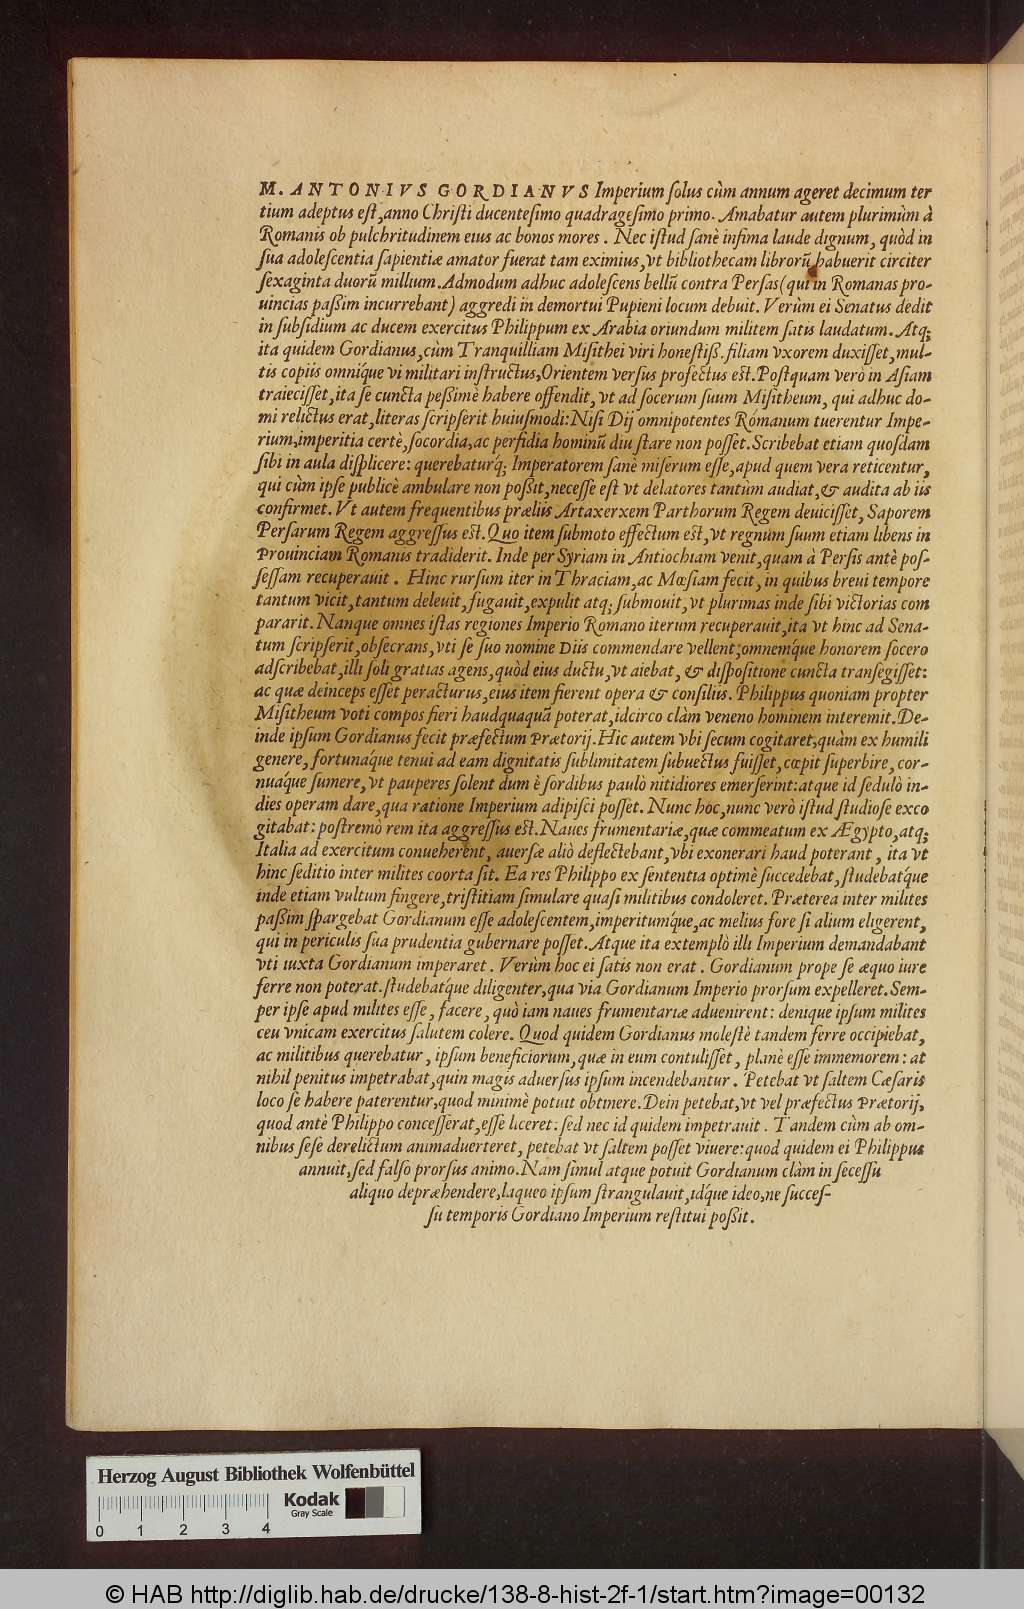 M. ANTONIVS GORDIANVS Imperium ſolus cùm annum ageret decimum ter
tium adeptus eſt, anno Chriſti ducenteſimo quadrageſimo primo. Amabatur autem plurimùm à
Romanis ob pulchritudinem eius ac bonos mores. Nec iſtud ſanè infima laude dignum, quòd in
ſua adoleſcentia ſapientiæ amator fuerat tam eximius, vt bibliothecam librorū habuerit circiter
ſexaginta duorū millium. Admodum adhuc adoleſcens bellū contra Perſas (qui in Romanas pro-
uincias paßim incurrebant) aggredi in demortui Pupieni locum debuit. Verùm ei Senatus dedit
in ſubſidium ac ducem exercitus Philippum ex Arabia oriundum militem ſatis laudatum. Atq;
ita quidem Gordianus, cùm Tranquilliam Miſithei viri honeſtiß. filiam vxorem duxiſſet, mul-
tis copiis omniq́ue vi militari inſtructus, Orientem verſus profectus est. Poſtquam verò in Aſiam
traieciſſet, ita ſe cuncta peßimè habere offendit, vt ad ſocerum ſuum Miſitheum, qui adhuc do-
mi relictus erat, literas ſcripſerit huiuſmodi: Niſi Dij omnipotentes Romanum tuerentur Impe-
rium, imperitia certè, ſocordia, ac perfidia hominū diu ſtare non poſſet. Scribebat etiam quoſdam
ſibi in aula diſplicere: querebaturq́; Imperatorem ſanè miſerum eſſe, apud quem vera reticentur,
qui cùm ipſe publicè ambulare non poßit, neceſſe eſt vt delatores tantùm audiat, & audita ab iis
confirmet. Vt autem frequentibus præliis Artaxerxem Parthorum Regem deuiciſſet, Saporem
Perſarum Regem aggreſſus est. Quo item ſubmoto effectum est, vt regnum ſuum etiam libens in
Prouinciam Romanis tradiderit. Inde per Syriam in Antiochiam venit, quam à Perſis antè poſ-
ſeſſam recuperauit. Hinc rurſum iter in Thraciam, ac Mœſiam fecit, in quibus breui tempore
tantum vicit, tantum deleuit, fugauit, expulit atq; ſubmouit, vt plurimas inde ſibi victorias com
pararit. Nanque omnes iſtas regiones Imperio Romano iterum recuperauit, ita vt hinc ad Sena-
tum ſcripſerit, obſecrans, vti ſe ſuo nomine Diis commendare vellent; omnemq́ue honorem ſocero
adſcribebat, illi ſoli gratias agens, quòd eius ductu, vt aiebat, & diſpoſitione cuncta tranſegiſſet:
ac quæ deinceps eſſet peracturus, eius item fierent opera & conſiliis. Philippus quoniam propter
Miſitheum voti compos fieri haudquaquā poterat, idcirco clàm veneno hominem interemit. De-
inde ipſum Gordianus fecit præfectum Prætorij. Hic autem vbi ſecum cogitaret, quàm ex humili
genere, fortunaq́ue tenui ad eam dignitatis ſublimitatem ſubuectus fuiſſet, cœpit ſuperbire, cor-
nuaq́ue ſumere, vt pauperes ſolent dum è ſordibus paulò nitidiores emerſerint: atque id ſedulò in-
dies operam dare, qua ratione Imperium adipiſci poſſet. Nunc hoc, nunc verò iſtud ſtudioſe exco
gitabat: poſtremò rem ita aggreſſus est. Naues frumentariæ, quæ commeatum ex Ægypto, atq;
Italia ad exercitum conueherent, auerſæ aliò deflectebant, vbi exonerari haud poterant, ita vt
hinc ſeditio inter milites coorta ſit. Ea res Philippo ex ſententia optimè ſuccedebat, ſtudebatq́ue
inde etiam vultum fingere, triſtitiam ſimulare quaſi militibus condoleret. Præterea inter milites
paßim ſpargebat Gordianum eſſe adoleſcentem, imperitumq́ue, ac melius fore ſi alium eligerent,
qui in periculis ſua prudentia gubernare poſſet. Atque ita extemplò illi Imperium demandabant
vti iuxta Gordianum imperaret. Verùm hoc ei ſatis non erat. Gordianum prope ſe æquo iure
ferre non poterat. ſtudebatq́ue diligenter, qua via Gordianum Imperio prorſum expelleret. Sem-
per ipſe apud milites eſſe, facere, quò iam naues frumentariæ aduenirent: denique ipſum milites
ceu vnicam exercitus ſalutem colere. Quod quidem Gordianus moleſtè tandem ferre occipiebat,
ac militibus querebatur, ipſum beneficiorum, quæ in eum contuliſſet, planè eſſe immemorem: at
nihil penitus impetrabat, quin magis aduerſus ipſum incendebantur. Petebat vt ſaltem Cæſaris
loco ſe habere paterentur, quod minimè potuit obtinere. Dein petebat, vt vel præfectus Prætorij,
quod antè Philippo conceſſerat, eſſe liceret: ſed nec id quidem impetrauit. Tandem cùm ab om-
nibus ſeſe derelictum animaduerteret, petebat vt ſaltem poſſet viuere: quod quidem ei Philippus
annuit, ſed falſo prorſus animo. Nam ſimul atque potuit Gordianum clàm in ſeceſſu
aliquo depræhendere, laqueo ipſum ſtrangulauit, idq́ue ideo, ne ſucceſ-
ſu temporis Gordiano Imperium reſtitui poßit.
Herzog August Bibliothek Wolfenbüttel
Kodak
Gray Scale
0 1 2 3 4
© HAB http://diglib.hab.de/drucke/138-8-hist-2f-1/start.htm?image=00132